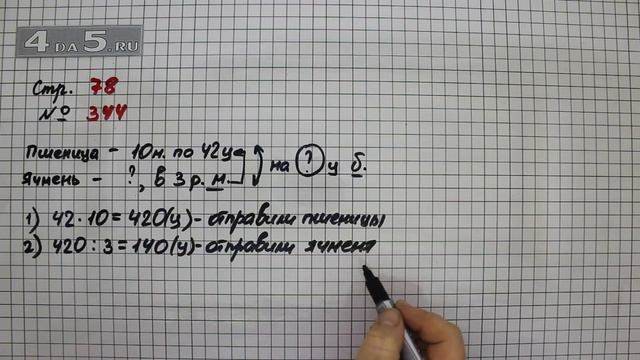 4 ДА 5.RU
Стр. 78
№ 344
Пшеница - 10м. по 42ц
Ячмень - ?, в 3 р. м. на ? ц б.
1) 42 · 10 = 420(ц) - отправили пшеницы
2) 420 : 3 = 140(ц) - отправили ячменя